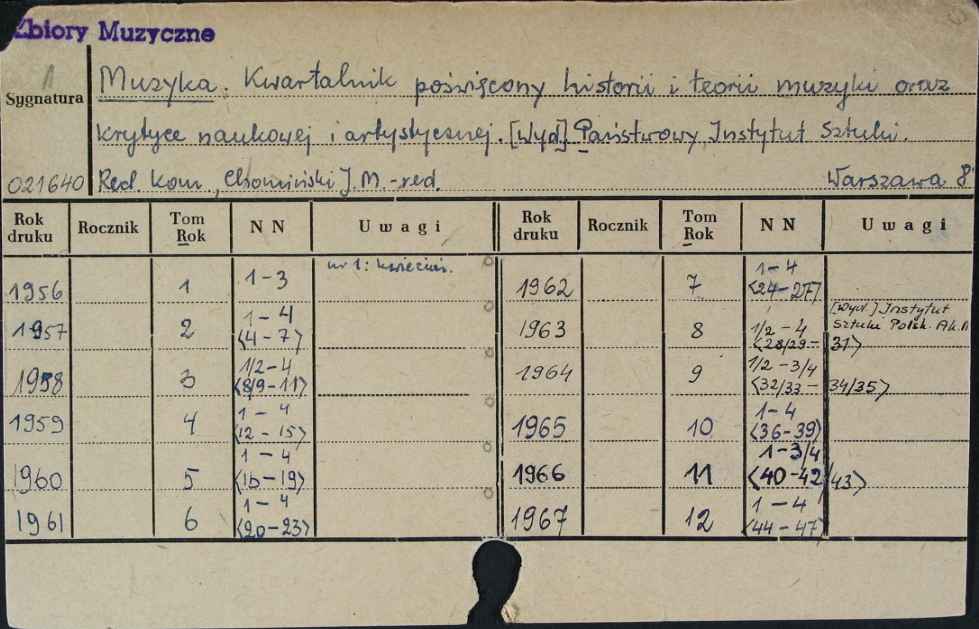 Zbiory Muzyczne
1
Sygnatura
Muzyka. Kwartalnik poświęcony historii i teorii muzyki oraz
krytyce naukowej i artystycznej. [Wyd.] Państwowy Instytut Sztuki.
021640 Red. Kom., Chomiński J. M. - red. Warszawa 8°
Rok druku Rocznik Tom Rok N N Uwagi Rok druku Rocznik Tom Rok N N Uwagi
1956 1 1-3 nr 1: kwiecień.
1957 2 1-4 <4-7>
1958 3 1/2-4 <8/9-11>
1959 4 1-4 <12-15>
1960 5 1-4 <16-19>
1961 6 1-4 <20-23>
1962 7 1-4 <24-27>
1963 8 1/2-4 <28/29-31> [Wyd.] Instytut Sztuki Polsk. Ak. N
1964 9 1/2-3/4 <32/33-34/35>
1965 10 1-4 <36-39>
1966 11 1-3/4 <40-42/43>
1967 12 1-4 <44-47>